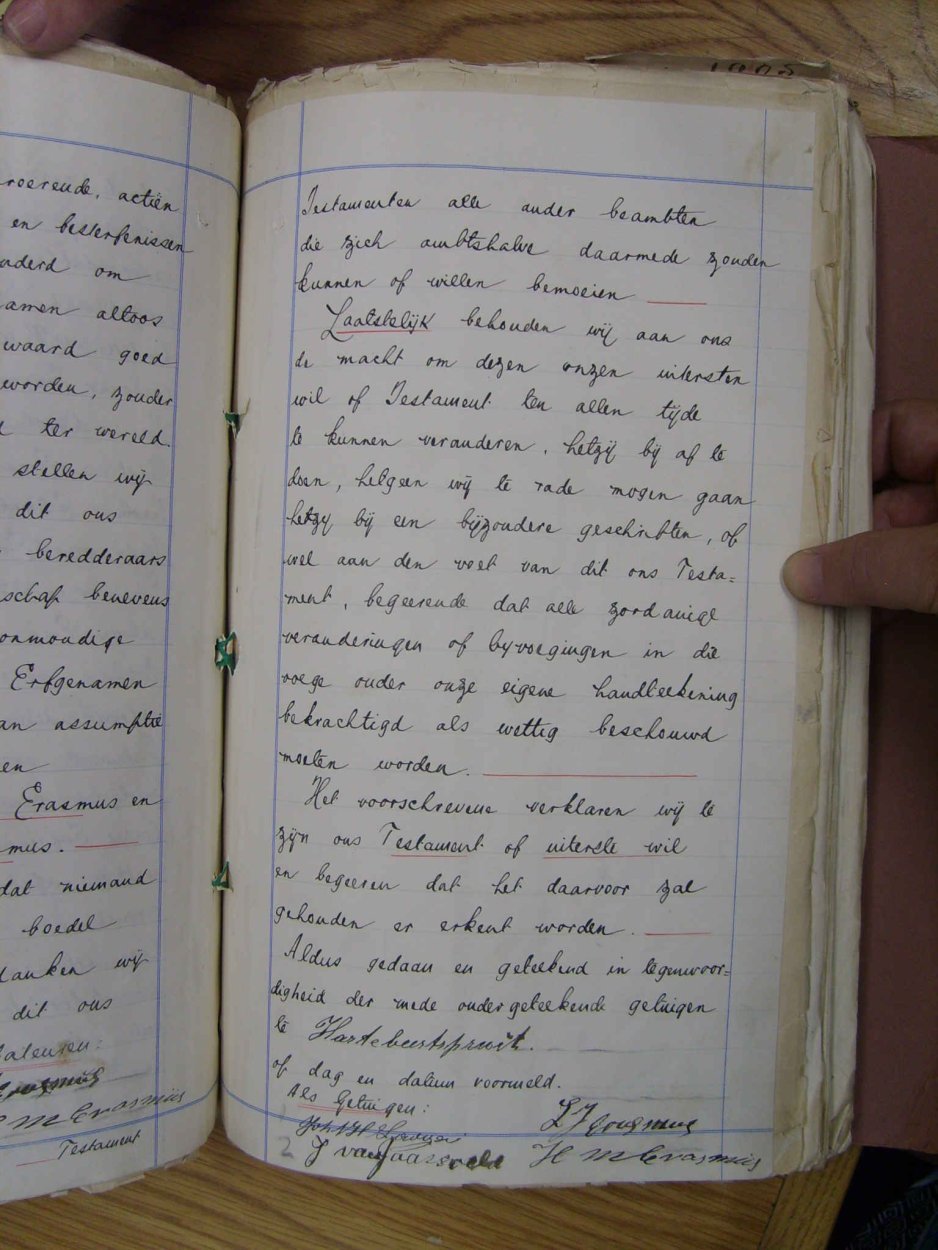 roerende, actiën
en besterfenissen
nderd om
amen altoos
waard goed
worden, zouder
ter wereld
stellen wij
dit ous
beredderaars
schap benevens
onmoudige
Erfgenamen
an assumptie
en
Erasmus en
mus.
dat niemand
boedel
danken wij
dit ous
M Erasmus
Testament
1905
Testamenten alle ander beambten
die zich ambtshalve daarmede zouden
kunnen of willen bemoeien
Laatstelijk behouden wij aan ons
de macht om dezen onzen uitersten
wil of Testament ten allen tijde
te kunnen veranderen, hetzij bij af te
doen, hetgeen wij te rade mogen gaan
hetzij bij een bijzondere geschriften, of
wel aan den voet van dit ons Testa=
ment, begeerende dat alle zordanige
veranderingen of byvoegingen in die
voege onder onze eigene handteekening
bekrachtigd als wettig beschouwd
moeten worden.
Het voorschrevene verklaren wij te
zijn ons Testament of uiterste wil
en begeeren dat het daarvoor zal
gehouden er erkent worden.
Aldus gedaan en geteekend in tegenwoor=
digheid der mede ondergeteekende getuigen
te Hartebeestspruit.
of dag en datum voormeld.
Als Getuigen:
LJ Erasmus
2 J van Jaarsveld H M Erasmus